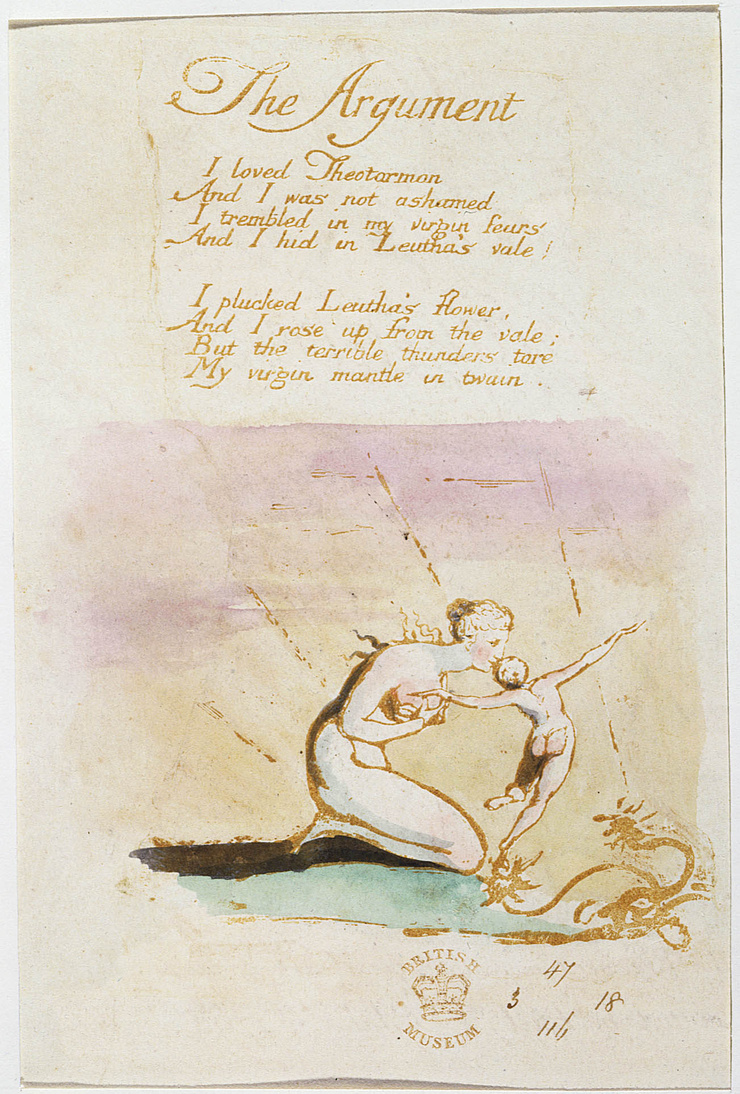 The Argument
I loved Theotormon
And I was not ashamed
I trembled in my virgin fears
And I hid in Leutha's vale!
I plucked Leutha's flower,
And I rose up from the vale;
But the terrible thunders tore
My virgin mantle in twain.
BRITISH
MUSEUM
47
3 18
116